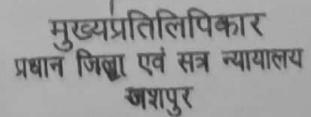 मुख्यप्रतिलिपिकार
प्रधान जिला एवं सत्र न्यायालय
जशपुर